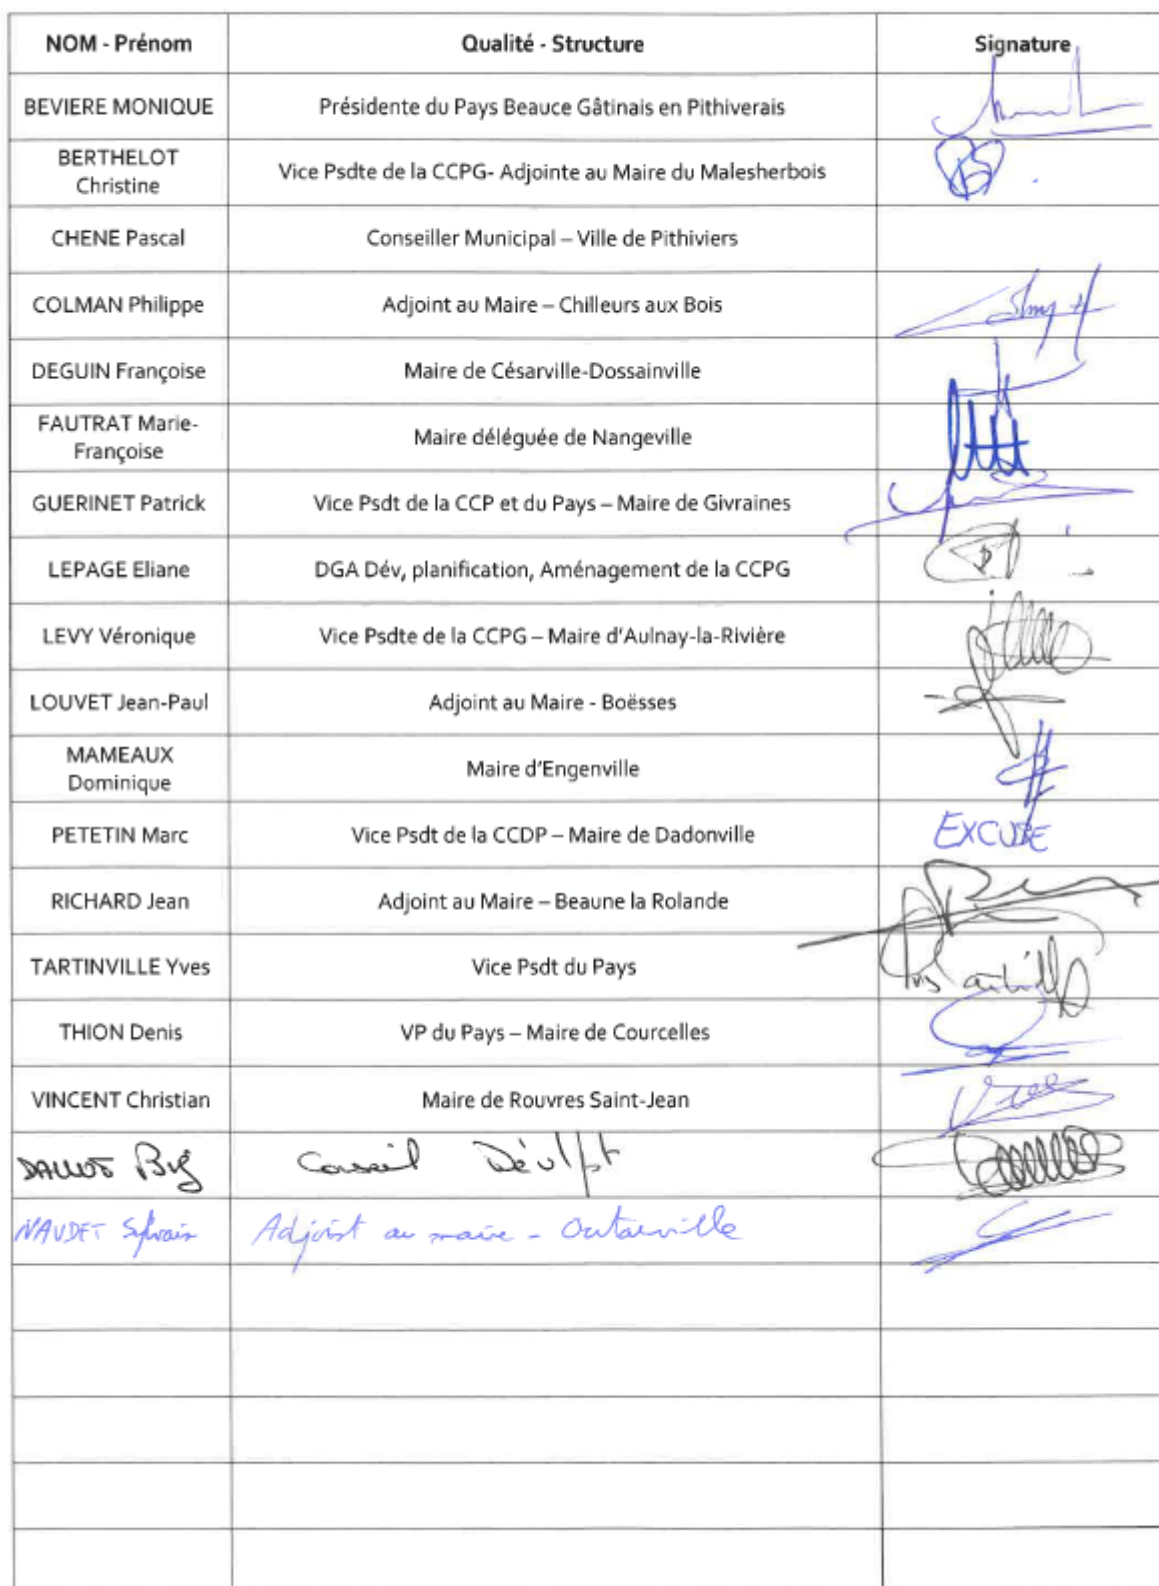 NOM - Prénom Qualité - Structure Signature
BEVIERE MONIQUE Présidente du Pays Beauce Gâtinais en Pithiverais
BERTHELOT
Christine Vice Psdte de la CCPG- Adjointe au Maire du Malesherbois
CHENE Pascal Conseiller Municipal – Ville de Pithiviers
COLMAN Philippe Adjoint au Maire – Chilleurs aux Bois
DEGUIN Françoise Maire de Césarville-Dossainville
FAUTRAT Marie-
Françoise Maire déléguée de Nangeville
GUERINET Patrick Vice Psdt de la CCP et du Pays – Maire de Givraines
LEPAGE Eliane DGA Dév, planification, Aménagement de la CCPG
LEVY Véronique Vice Psdte de la CCPG – Maire d'Aulnay-la-Rivière
LOUVET Jean-Paul Adjoint au Maire - Boësses
MAMEAUX
Dominique Maire d'Engenville
PETETIN Marc Vice Psdt de la CCDP – Maire de Dadonville EXCUSE
RICHARD Jean Adjoint au Maire – Beaune la Rolande
TARTINVILLE Yves Vice Psdt du Pays
THION Denis VP du Pays – Maire de Courcelles
VINCENT Christian Maire de Rouvres Saint-Jean
Conseil Dévlpt
NAUDET Sylvain Adjoint au maire - Outarville